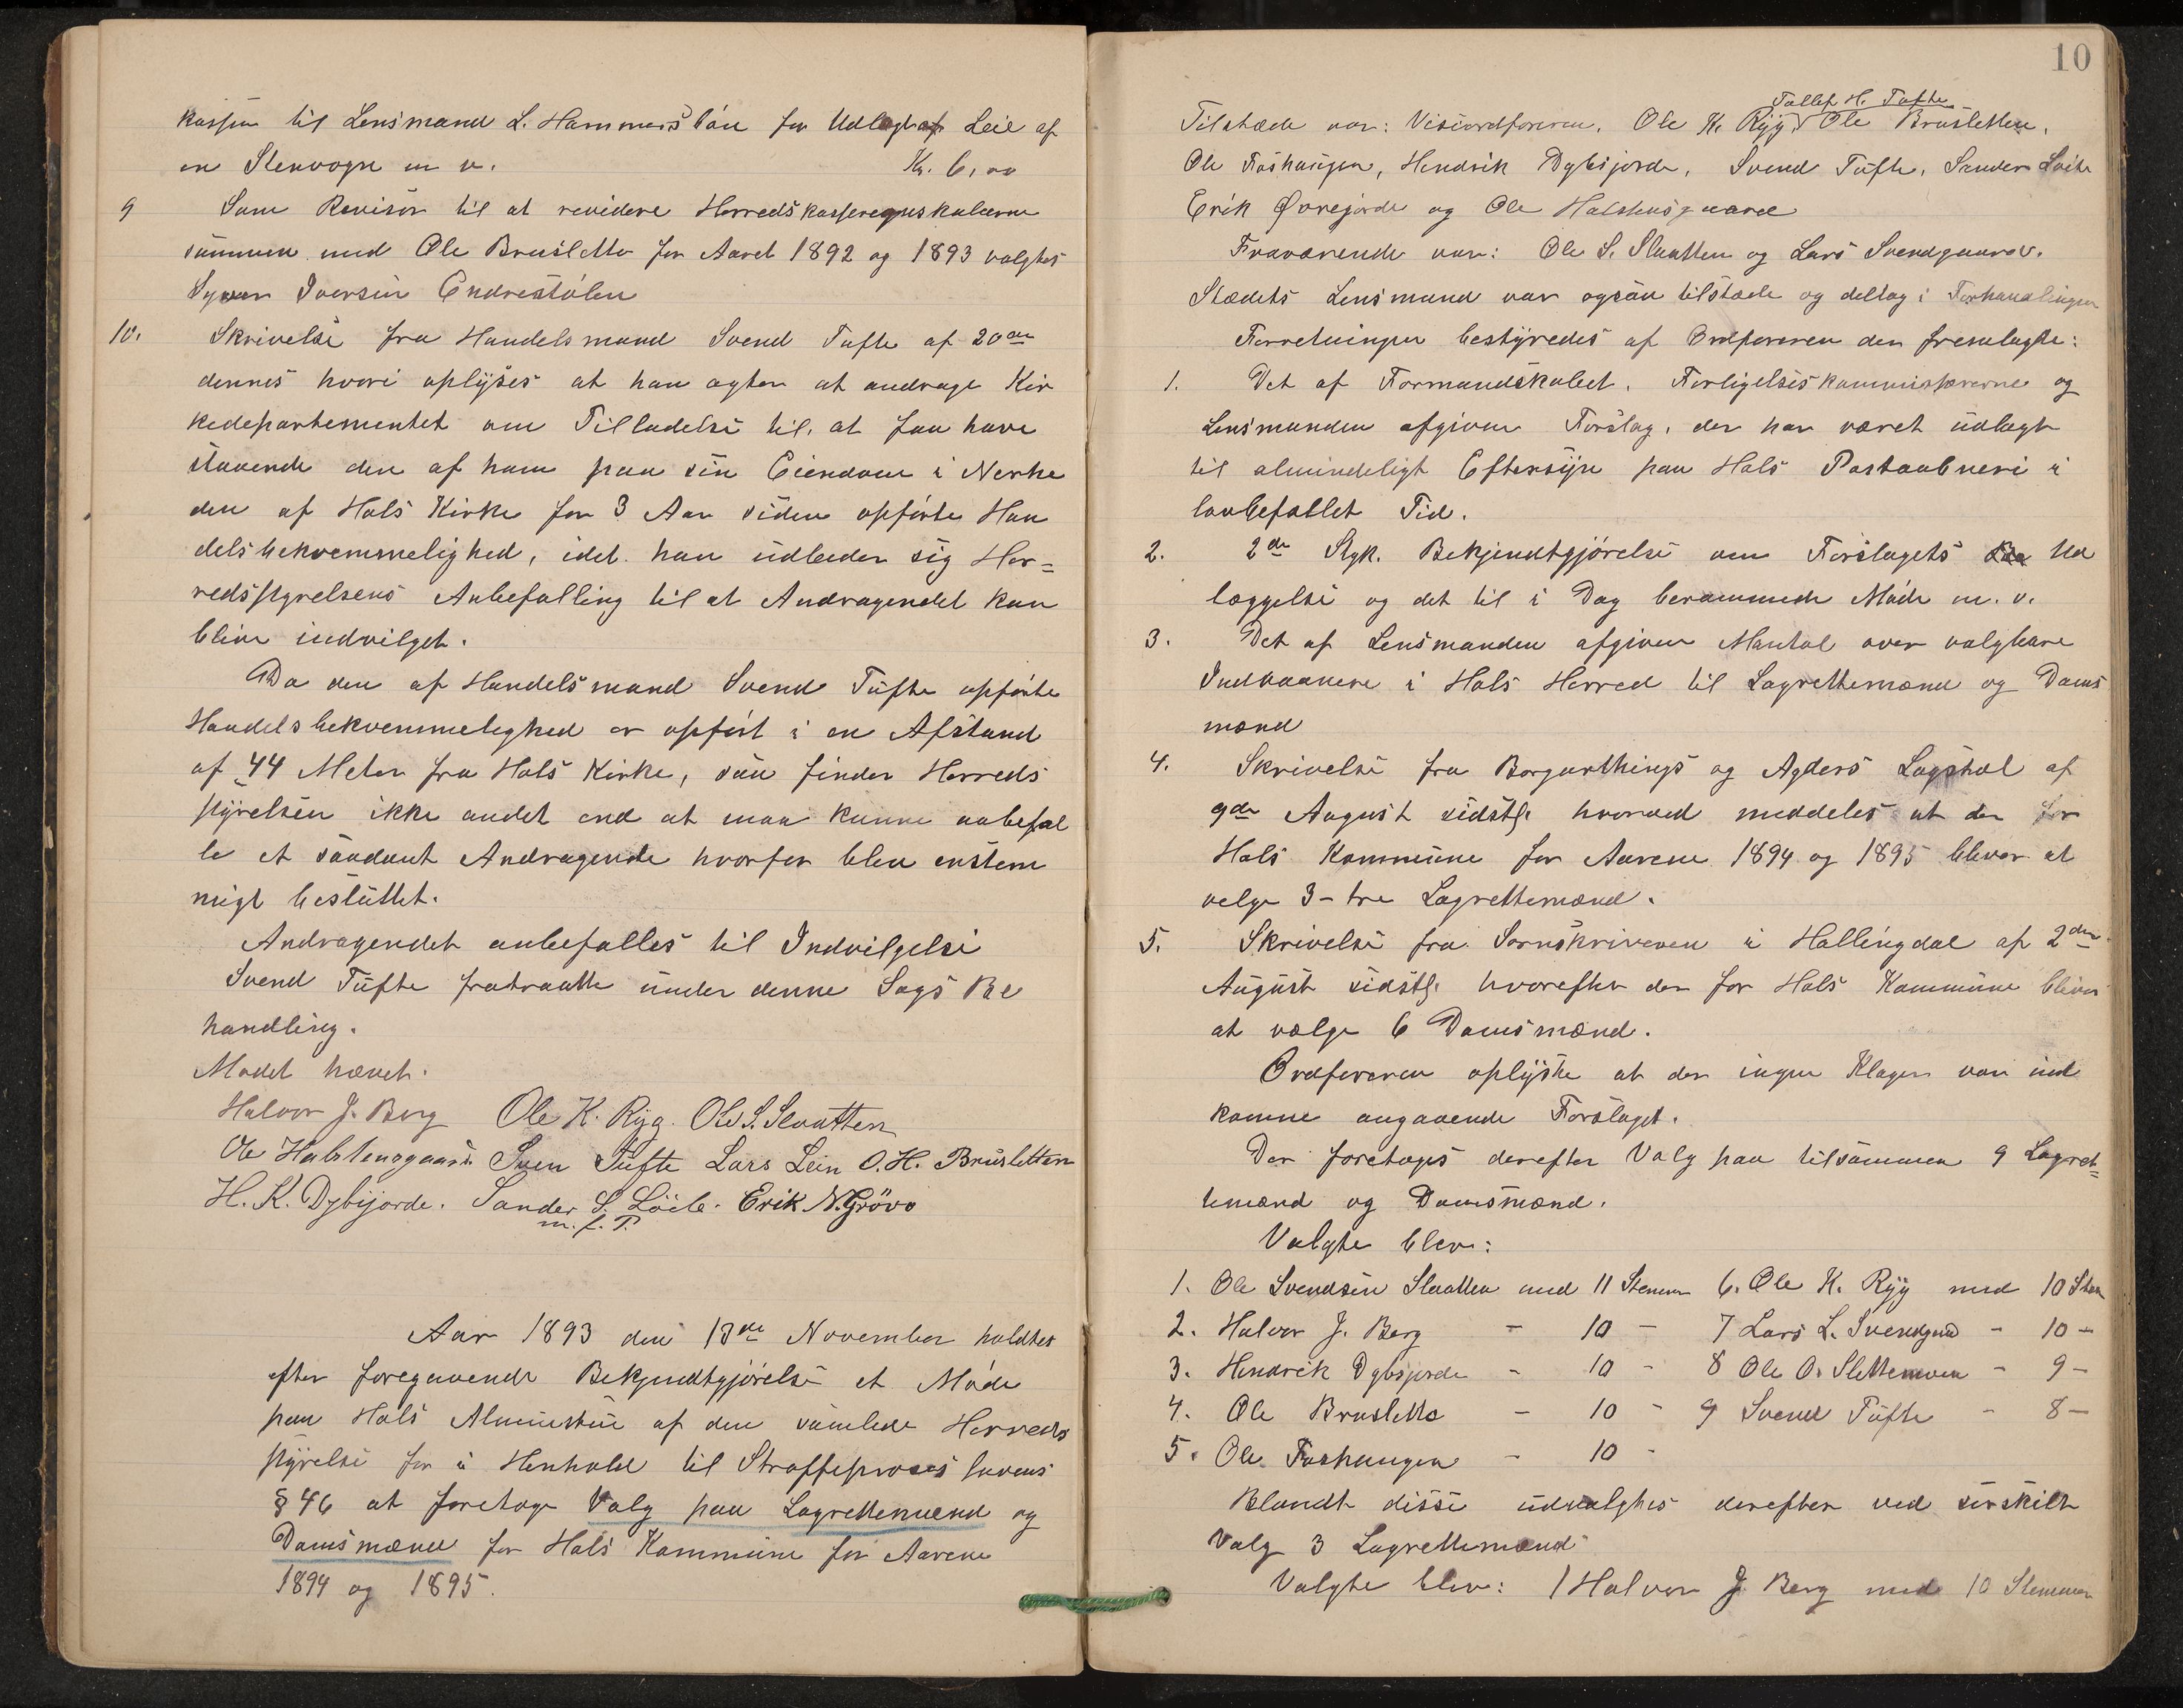 kassen til Lensmand L. Hammersbøen for Udlæg af Leie af
en Stenvogn m v. Kr. 6,00
9 Som Revisor til at revidere Herredskasseregnskaberne
sammen med Ole Brusletto for Aaret 1892 og 1893 valgtes
Iversen Endrestølen
10. Skrivelse fra Handelsmand Svend Tufte af 20de
dennes hvori oplyses at han agter at andrage Kir
kedepartementet om Tilladelse til at faa have
staaende den af ham paa sin Eiendom i Nerhe
den af Hols Kirke for 3 Aar siden opførte Han
delsbekvemmelighed, idet han udbeder sig Her=
redsstyrelsens Anbefalling til at Andragendet kan
blive indvilget.
Da den af Handelsmand Svend Tufte opførte
Handelsbekvemmelighed er opført i en Afstand
af 44 Meter fra Hols Kirke, saa finder Herreds
styrelsen ikke andet end at maa kunne anbefal
le et saadant Andragende hvorfor blev enstem
migt besluttet.
Andragendet anbefalles til Indvilgelse
Svend Tufte fratraadte under denne Sags Be
handling.
Mødet hævet.
Halvor J. Berg Ole K. Ryg. Ole S. Slaatten
Ole Halstensgaard Sven Tufte Lars Lein O. H. Brusletten
H. K. Dybsjorde. Sander S. Løite. Erik N. Grøvo
m. f. P.
Aar 1893 den 13de November holdtes
efter foregaaende Bekjendtgjørelse et Møde
paa Hols Almuestue af den samlede Herreds
styrelse for i Henhold til Straffeproses lovens
§ 46 at foretage Valg paa Lagrettemænd og
Domsmænd for Hols Kommune for Aarene
1894 og 1895.
10
Tollef H. Tufte
Tilstæde var: Viseordføreren, Ole K. Ryg, Ole Brusletten,
Ole Foshaugen, Hendrik Dybsjorde, Svend Tufte, Sander Løite
Erik Øvrejorde og Ole Halstensgaard
Fraværende var: Ole S. Slaatten og Lars Svendgaard.
Stædets Lensmand var ogsaa tilstæde og deltog i Forhandlingen
Forretningen bestyredes af Ordføreren der fremlagte:
1. Det af Formandskabet, Forligelseskommissærerne og
Lensmanden afgivne Forslag, der har været udlagt
til almindeligt Eftersyn paa Hols Postaabneri i
lovbefallet Tid.
2. 2de Styk. Bekjendtgjørelse om Forslagets Ud
læggelse og det til i Dag berammede Møde m. v.
3. Det af Lensmanden afgivne Mantal over valgbare
Indvaanere i Hols Herred til Lagrettemænd og Doms
mænd
4. Skrivelse fra Borgarthings og Agders Lagstol af
9de August sidstl. hvorved meddeles at der for
Hols Kommune for Aarene 1894 og 1895 bliver at
velge 3 - tre Lagrettemænd.
5. Skrivelse fra Sorenskriveren i Hallingdal af 2den
August sidstl. hvorefter der for Hols Kommune bliver
at vælge 6 Domsmænd.
Ordføreren oplyste at der ingen Klager var ind
komne angaaende Forslaget.
Der foretoges derefter Valg paa tilsammen 9 Lagret=
temænd og Domsmænd.
Valgte blev:
1. Ole Svendsen Slaatten med 11 Stemmer 6. Ole K. Ryg med 10 Stem
2. Halvor J. Berg - 10 - 7 Lars L. Svendgaard - 10 -
3. Hendrik Dybsjorde - 10 - 8 Ole O. Slettemoen - 9 -
4. Ole Brusletto - 10 - 9 Svend Tufte - 8 -
5. Ole Foshaugen - 10 -
Blandt disse udvalgtes derefter ved særskilt
Valg 3 Lagrettemænd
Valgte blev: 1 Halvor J. Berg med 10 Stemmer